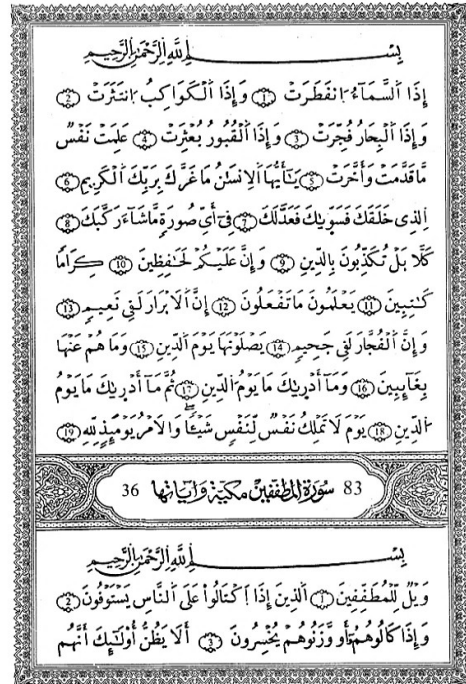 بِسْمِ اِ۬للَّهِ اِ۬لرَّحْمَٰنِ اِ۬لرَّحِيمِ
إِذَا اَ۬لسَّمَآءُ اُ۪نفَطَرَتْ 1 وَإِذَا اَ۬لْكَوَاكِبُ اُ۪نتَثَرَتْ 2
وَإِذَا اَ۬لْبِحَارُ فُجِّرَتْ 3 وَإِذَا اَ۬لْقُبُورُ بُعْثِرَتْ 4 عَلِمَتْ نَفْسٌ
مَّا قَدَّمَتْ وَأَخَّرَتْ 5 يَٰٓأَيُّهَا اَ۬لِانسَٰنُ مَا غَرَّكَ بِرَبِّكَ اَ۬لْكَرِيمِ 6
اِ۬لذِى خَلَقَكَ فَسَوّ۪يٰكَ فَعَدَّلَكَ 7 فِےٓ أَيِّ صُورَةٍ مَّا شَآءَ رَكَّبَكَ 8
كَلَّا بَلْ تُكَذِّبُونَ بِالدِّينِ 9 وَإِنَّ عَلَيْكُمْ لَحَٰفِظِينَ 10 كِرَامًا
كَٰتِبِينَ 11 يَعْلَمُونَ مَا تَفْعَلُونَ 12 إِنَّ اَ۬لَابْرَارَ لَفِے نَعِيمٍ 13
وَإِنَّ اَ۬لْفُجَّارَ لَفِے جَحِيمٍ 14 يَصْلَوْنَهَا يَوْمَ اَ۬لدِّينِ 15 وَمَا هُمْ عَنْهَا
بِغَآئِبِينَ 16 وَمَآ أَدْر۪يٰكَ مَا يَوْمُ اُ۬لدِّينِ 17 ثُمَّ مَآ أَدْر۪يٰكَ مَا يَوْمُ
اُ۬لدِّينِ 18 يَوْمَ لَا تَمْلِكُ نَفْسٌ لِّنَفْسٍ شَيْـًٔا وَالَامْرُ يَوْمَئِذٍ لِّلهِ 19
83 سُورَةُ المُطَفِّفِينَ مَكِّيَّة وَآيَاتُهَا 36
بِسْمِ اِ۬للَّهِ اِ۬لرَّحْمَٰنِ اِ۬لرَّحِيمِ
وَيْلٌ لِّلْمُطَفِّفِينَ 1 اَ۬لذِينَ إِذَا اَ۪كْتَالُواْ عَلَى اَ۬لنَّاسِ يَسْتَوْفُونَ 2
وَإِذَا كَالُوهُمُۥٓ أَو وَّزَنُوهُمْ يُخْسِرُونَ 3 أَلَا يَظُنُّ أُوْلَٰٓئِكَ أَنَّهُم